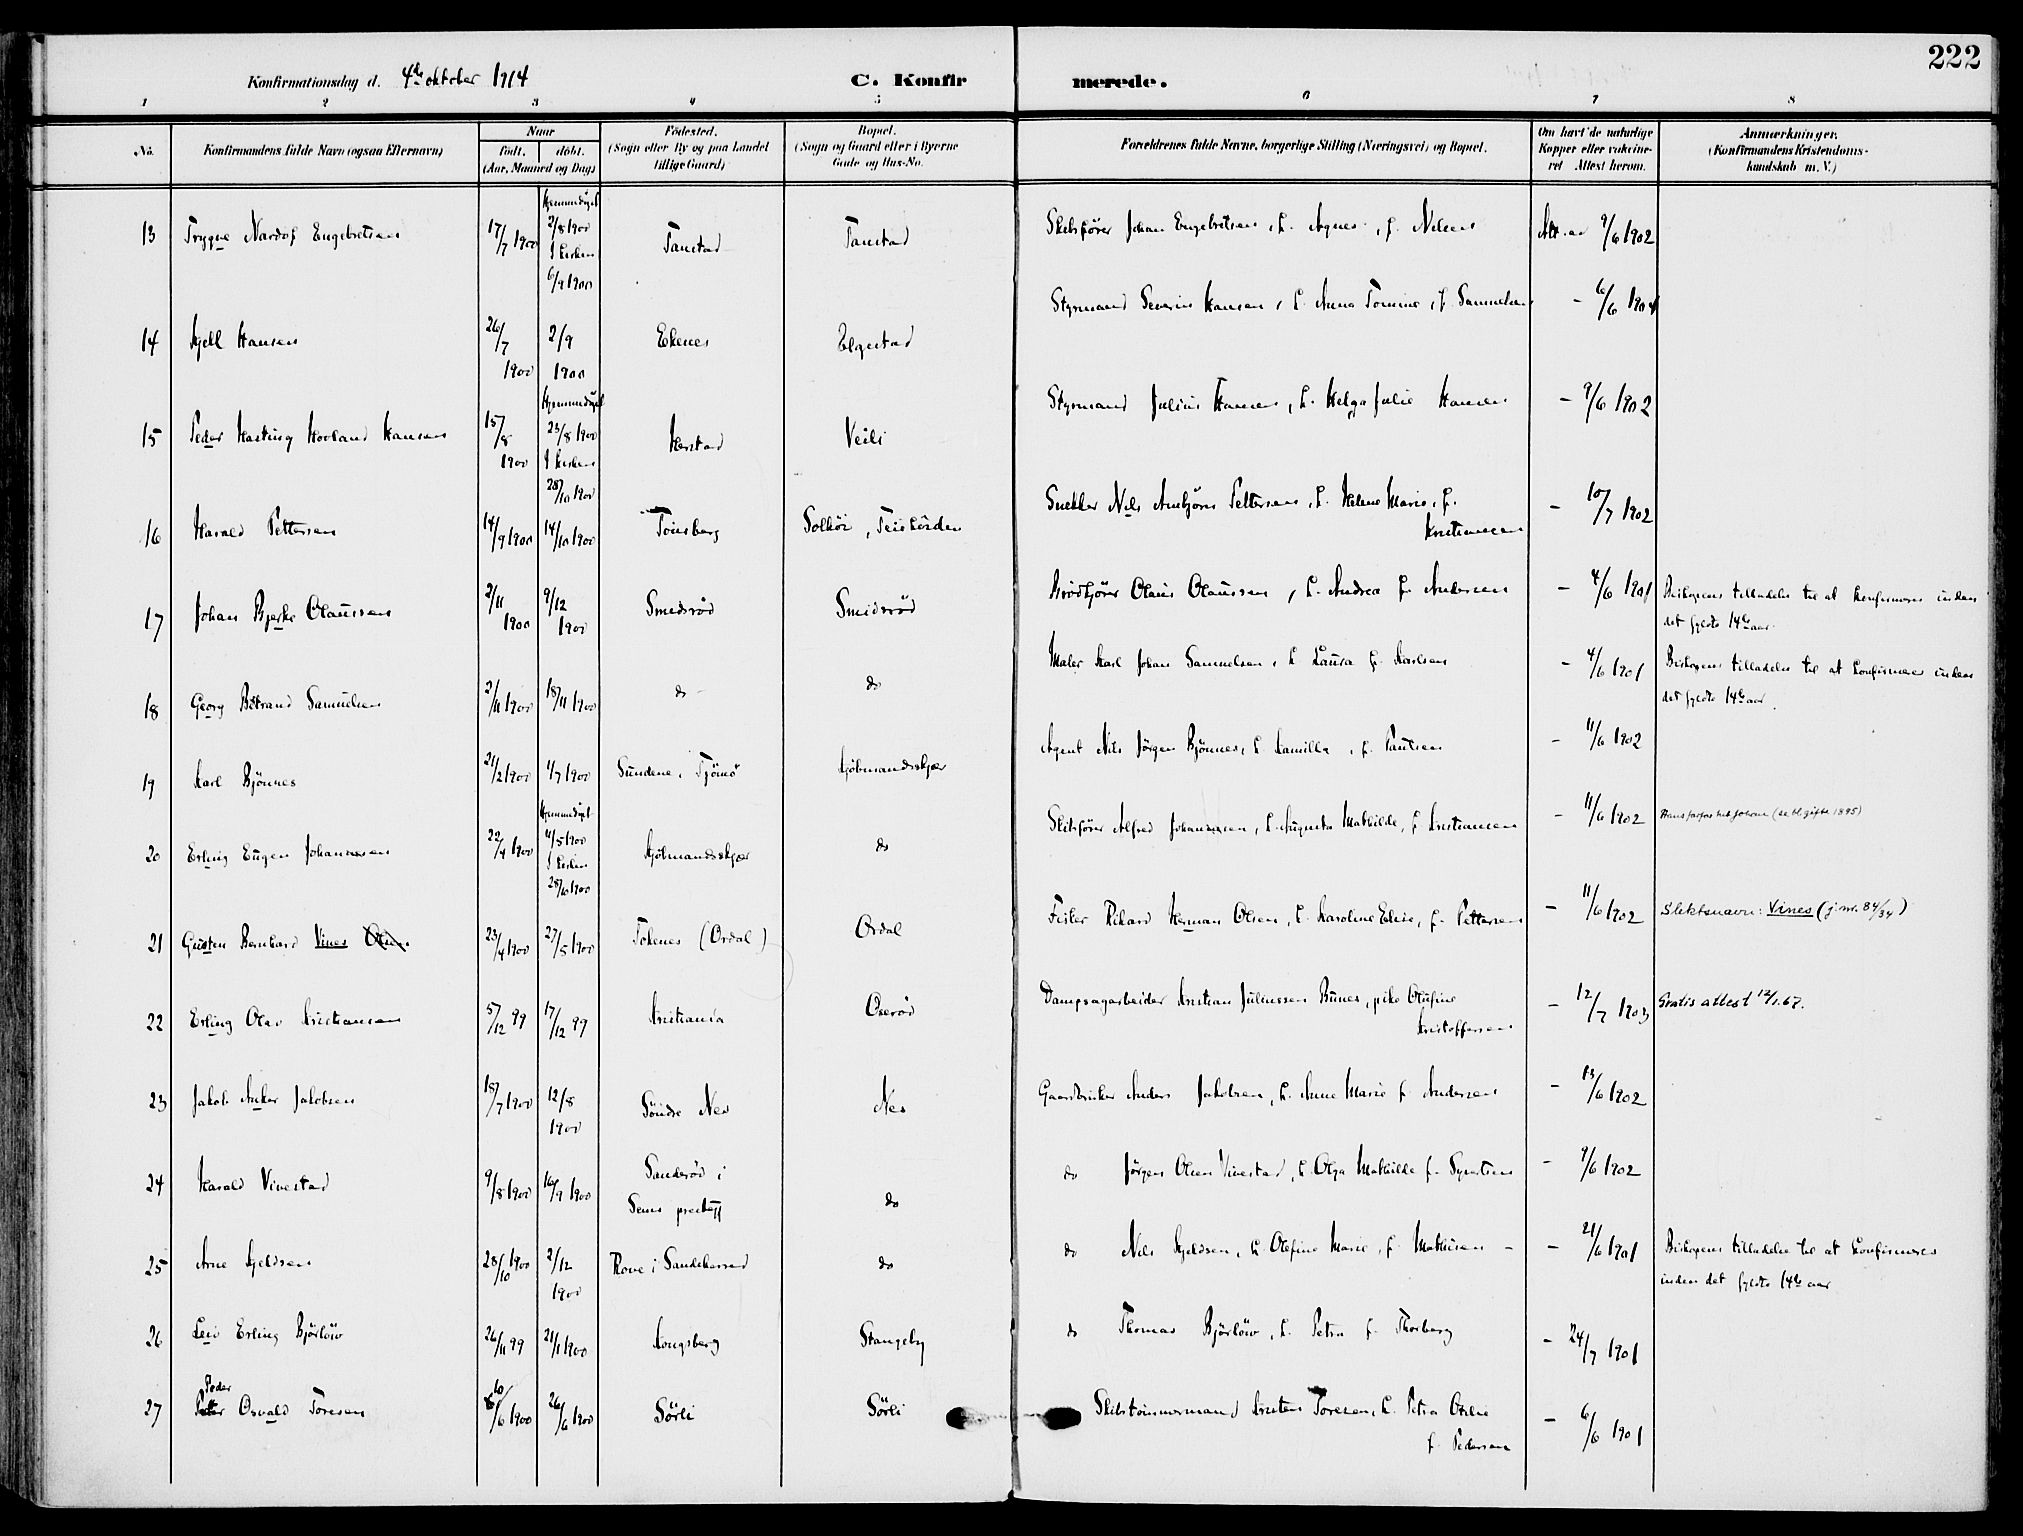 222
Konfirmationsdag d. 4de oktober 1914 C. Konfirmerede.
1 2 3 4 5 6 7 8
No. Konfirmandens fulde Navn (ogsaa Efternavn) Naar født. døbt. (Aar, Maaned og Dag) Fødested. (Sogn eller By og paa Landet tillige Gaard) Bopæl. (Sogn og Gaard eller i Byerne Gade og Hus-No. Forældrenes fulde Navne, borgerlige Stilling (Næringsvei) og Bopæl. Om havt de naturlige Kopper eller vaccineret Attest herom. Anmærkninger. (Konfirmandens Kristendomskundskab m. V.)
13 Trygve Nardof Engebretsen 17/7 1900 Hjemmedøpt 2/8 1900 I kirken 6/9 1900 Tanstad Tanstad Skibsfører Johan Engebretsen, h. Agnes, f. Nilsen Att. av 9/6 1902
14 Kjell Hansen 26/7 1900 2/9 1900 Ekenes Elgestad Styrmand Severin Hansen, h. Anna Tomine, f. Samuelsen - 6/6 1904
15 Peder Hasting Hovland Hansen 15/8 1900 Hjemmedøpt 23/8 1900 I kirken 28/10 1900 Herstad Veili Styrmand Julius Hansen, h. Helga Julie Hansen - 9/6 1902
16 Harald Pettersen 14/9 1900 14/10 1900 Tønsberg Solhøi, Snekker Nils Arnbjørn Pettersen, h. Helene Marie, f. Kristiansen - 10/7 1902
17 Johan Bjerke Olaussen 2/11 1900 9/12 1900 Smidsrød Smidsrød Brødkjører Olaus Olaussen, h. Andrea f. Andersen - 4/6 1901 Biskopens tilladelse til at konfirmeres inden det fyldte 14de aar.
18 Georg Betrand Samuelsen 2/11 1900 18/11 1900 do do Maler Karl Johan Samuelsen, h. Laura f. Karlsen - 4/6 1901 Biskopens tilladelse til at konfirmeres inden det fyldte 14de aar.
19 Karl Bjønnes 21/2 1900 1/7 1900 Sundene, Tjømø Kjøbmandsskjær Agent Nils Jørgen Bjønnes, h. Kamilla, f. Paulsen - 11/6 1902
20 Erling Eugen Johannesen 22/4 1900 Hjemmedøpt 4/5 1900 I kirken 28/10 1900 Kjøbmandsskjær do Skibsfører Alfred Johannesen, h. Augusta Mathilde, f. Kristiansen - 11/6 1902 (de bl. gifte 1895)
21 Gusten Bernhard Vines Olsen 23/4 1900 27/5 1900 Tokenes (Ordal) Ordal Fisker Rikard Herman Olsen, h. Karoline Elise, f. Pettersen - 11/6 1902 Slektsnavn: Vines (j.nr. 84/34)
22 Erling Olav Kristiansen 5/12 99 17/12 99 Kristiania Oserød Dampsagarbeider Kristian Juliussen Bunes, pike Olufine Kristoffersen - 12/7 1903 Gratis attest 12/1.67.
23 Jakob Anker Jakobsen 18/7 1900 12/8 1900 Søndre Nes Nes Gaardbruker Anders Jakobsen, h. Anne Marie f. Andersen - 13/6 1902
24 Harald Vivestad 9/8 1900 16/9 1900 Sanderød i Sems prestegj do do Jørgen Olsen Vivestad, h. Olga Mathilde f. Syvertsen - 9/6 1902
25 Arne Kjeldsen 28/10 1900 2/12 1900 Rove i Sandeherred do do Nils Kjeldsen, h. Olefine Marie, f. Mathisen - - 21/6 1901 Biskopens tilladelse til at konfirmeres inden det fyldte 14de aar
26 Leiv Erling Bjørløw 26/11 99 21/1 1900 Kongsberg Stangeby do Thomas Bjørløw, h. Petra f. Thorberg - 24/7 1901
27 Peder Osvald Toresen 10/6 1900 26/6 1900 Sørli Sørli Skibstømmermand Kristen Toresen, h. Petra Otilie f. Pedersen - 6/6 1901